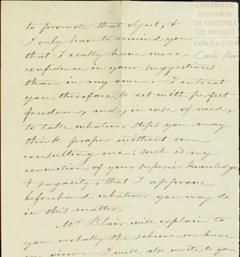 to promote that object, &
I only have to remind you
that I really have more
confidence in your suggestions
than in my own. I entreat
you, therefore, to act with perfect
freedom, and, in case of need,
to take whatever steps you may
think proper without even
consulting me: such is my
conviction of your superior knowledge
& sagacity, that I approve
beforehand whatever you may do
in this matter.
Mr Blair will explain to
you verbally the scheme we have
in view. I will also write to you
CENTRO DE
ESTUDIOS
DE HISTORIA
DE MEXICO
FUNDACIÓN
Carlos Slim